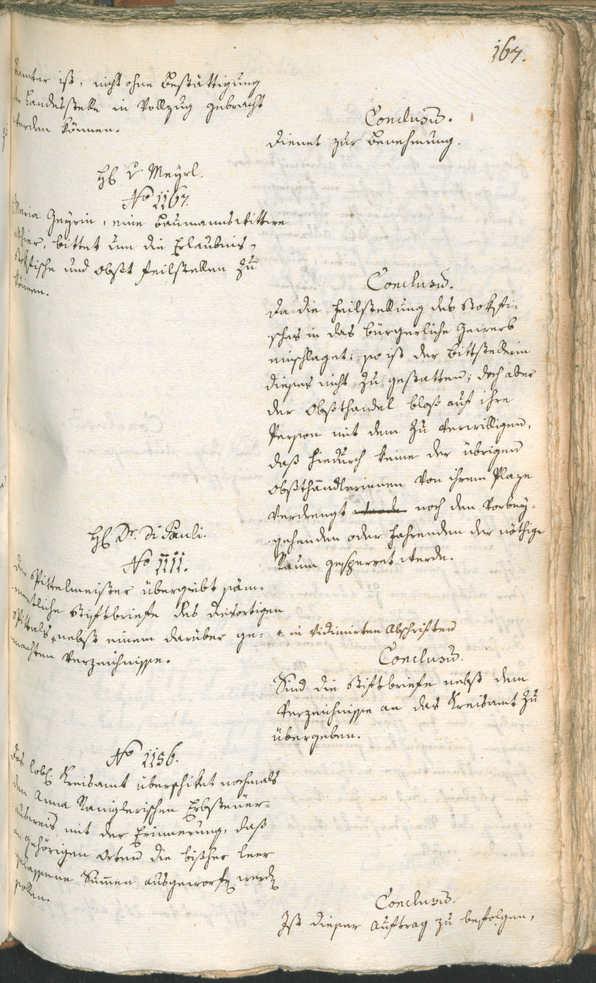 167.
ist, nicht ohne Bestättigung
Landesstelle in Vollzug gebracht
werden können.
Conclusum.
Dienet zur Benehmung.
H. v. Meyrl.
No 1167.
Maria Geyrin, eine Baumannsköttere
bittet um die Erlaubnis,
Stokfische und Obst feilstellen zu
können.
Conclusum.
Da die Feilstellung des Stokfi-
sches in das bürgerliche Gewerb
einschlaget; so ist der Bittstellerin
dieses nicht zu gestatten; doch aber
der Obsthandel bloß auf ihre
Person mit dem zu verwilligen,
daß hiedurch keine der übrigen
Obsthändlerinnen von ihrem Plaze
verdrengt werde noch den vorbey-
gehenden oder fahrenden der nöthige
Raum gesperret werde.
H. Dr. di Pauli.
No 1111.
Der Spittelmeister übergiebt säm-
mentliche Stiftbriefe des diesortigen
Spittals, nebst einem darüber ge-
machten Verzeichnisse.
in vidimirten Abschriften
Conclusum.
Sind die Stiftbriefe nebst dem
Verzeichnisse an das Kreisamt zu
übergeben.
No 1156.
Das löbl. Kreisamt überschiket nochmals
den Anna Ranglerischen Erbsteuer-
ausweis, mit der Erinnerung, daß
an gehörigen Orten die bisher leer
gelassene Summen ausgeworfen werden
sollen.
Conclusum.
Ist dieser Auftrag zu befolgen,